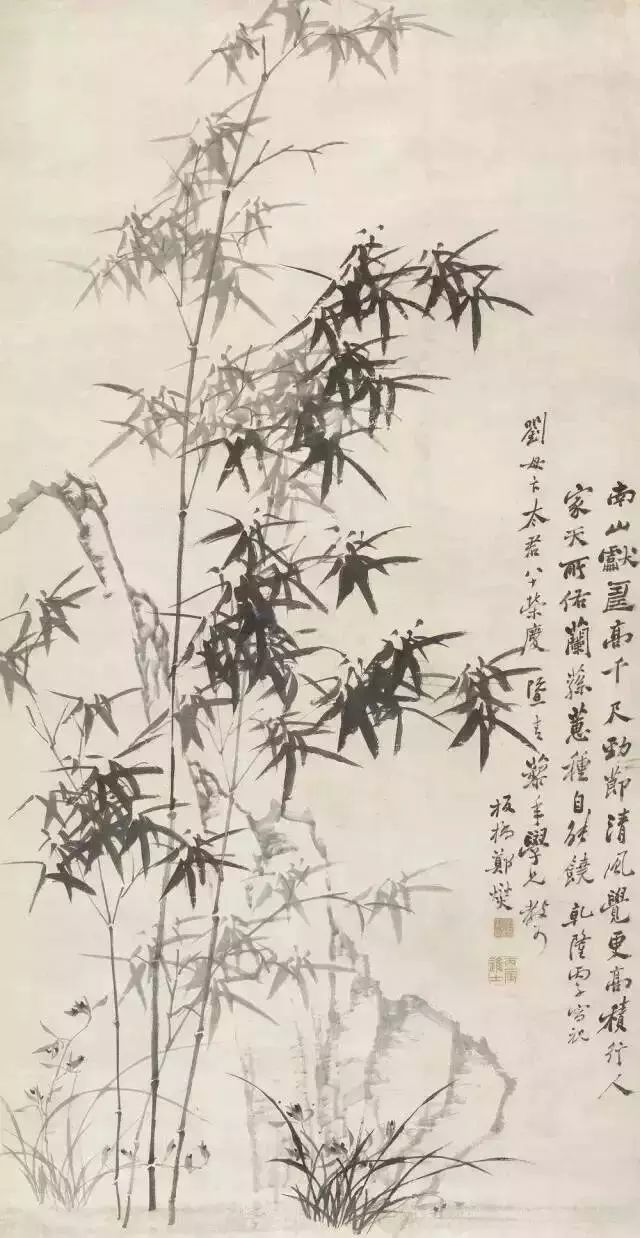 南山獻壽高千尺勁節清風覺更高積行人
家天所佑蘭蓀蕙種自能饒乾隆丙子寫祝
劉母卞太君八十榮慶藜年學兄教可
板橋鄭燮
丙辰進士